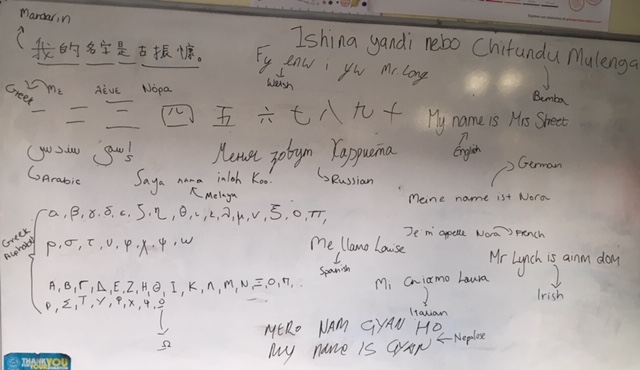 Mandarin
我的名字是古振慷。
Ishina yandi nebo Chitundu Mulenga
Bemba
Fy enw i yw Mr. Long
Welsh
Greek
Με λένε Νόρα
一 二 三 四 五 六 七 八 九 十
My name is Mrs Sheet
English
Arabic
Меня зовут Харриета
Russian
Saya nama ialah Koo.
Melaya
German
Meine name ist Nora
Greek Alphabet
α, β, γ, δ, ε, ζ, η, θ, ι, κ, λ, μ, ν, ξ, ο, π,
ρ, σ, τ, υ, φ, χ, ψ, ω
Α, Β, Γ, Δ, Ε, Ζ, Η, Θ, Ι, Κ, Λ, Μ, Ν, Ξ, Ο, Π,
Ρ, Σ, Τ, Υ, Φ, Χ, Ψ, Ω
Ω
Je m'appelle Nora
French
Me llamo Louise
Spanish
Mr Lynch is ainm dom
Irish
Mi chiamo Laura
Italian
MERO NAM GYAN HO
MY NAME IS GYAN
Nepalese
THANK YOU